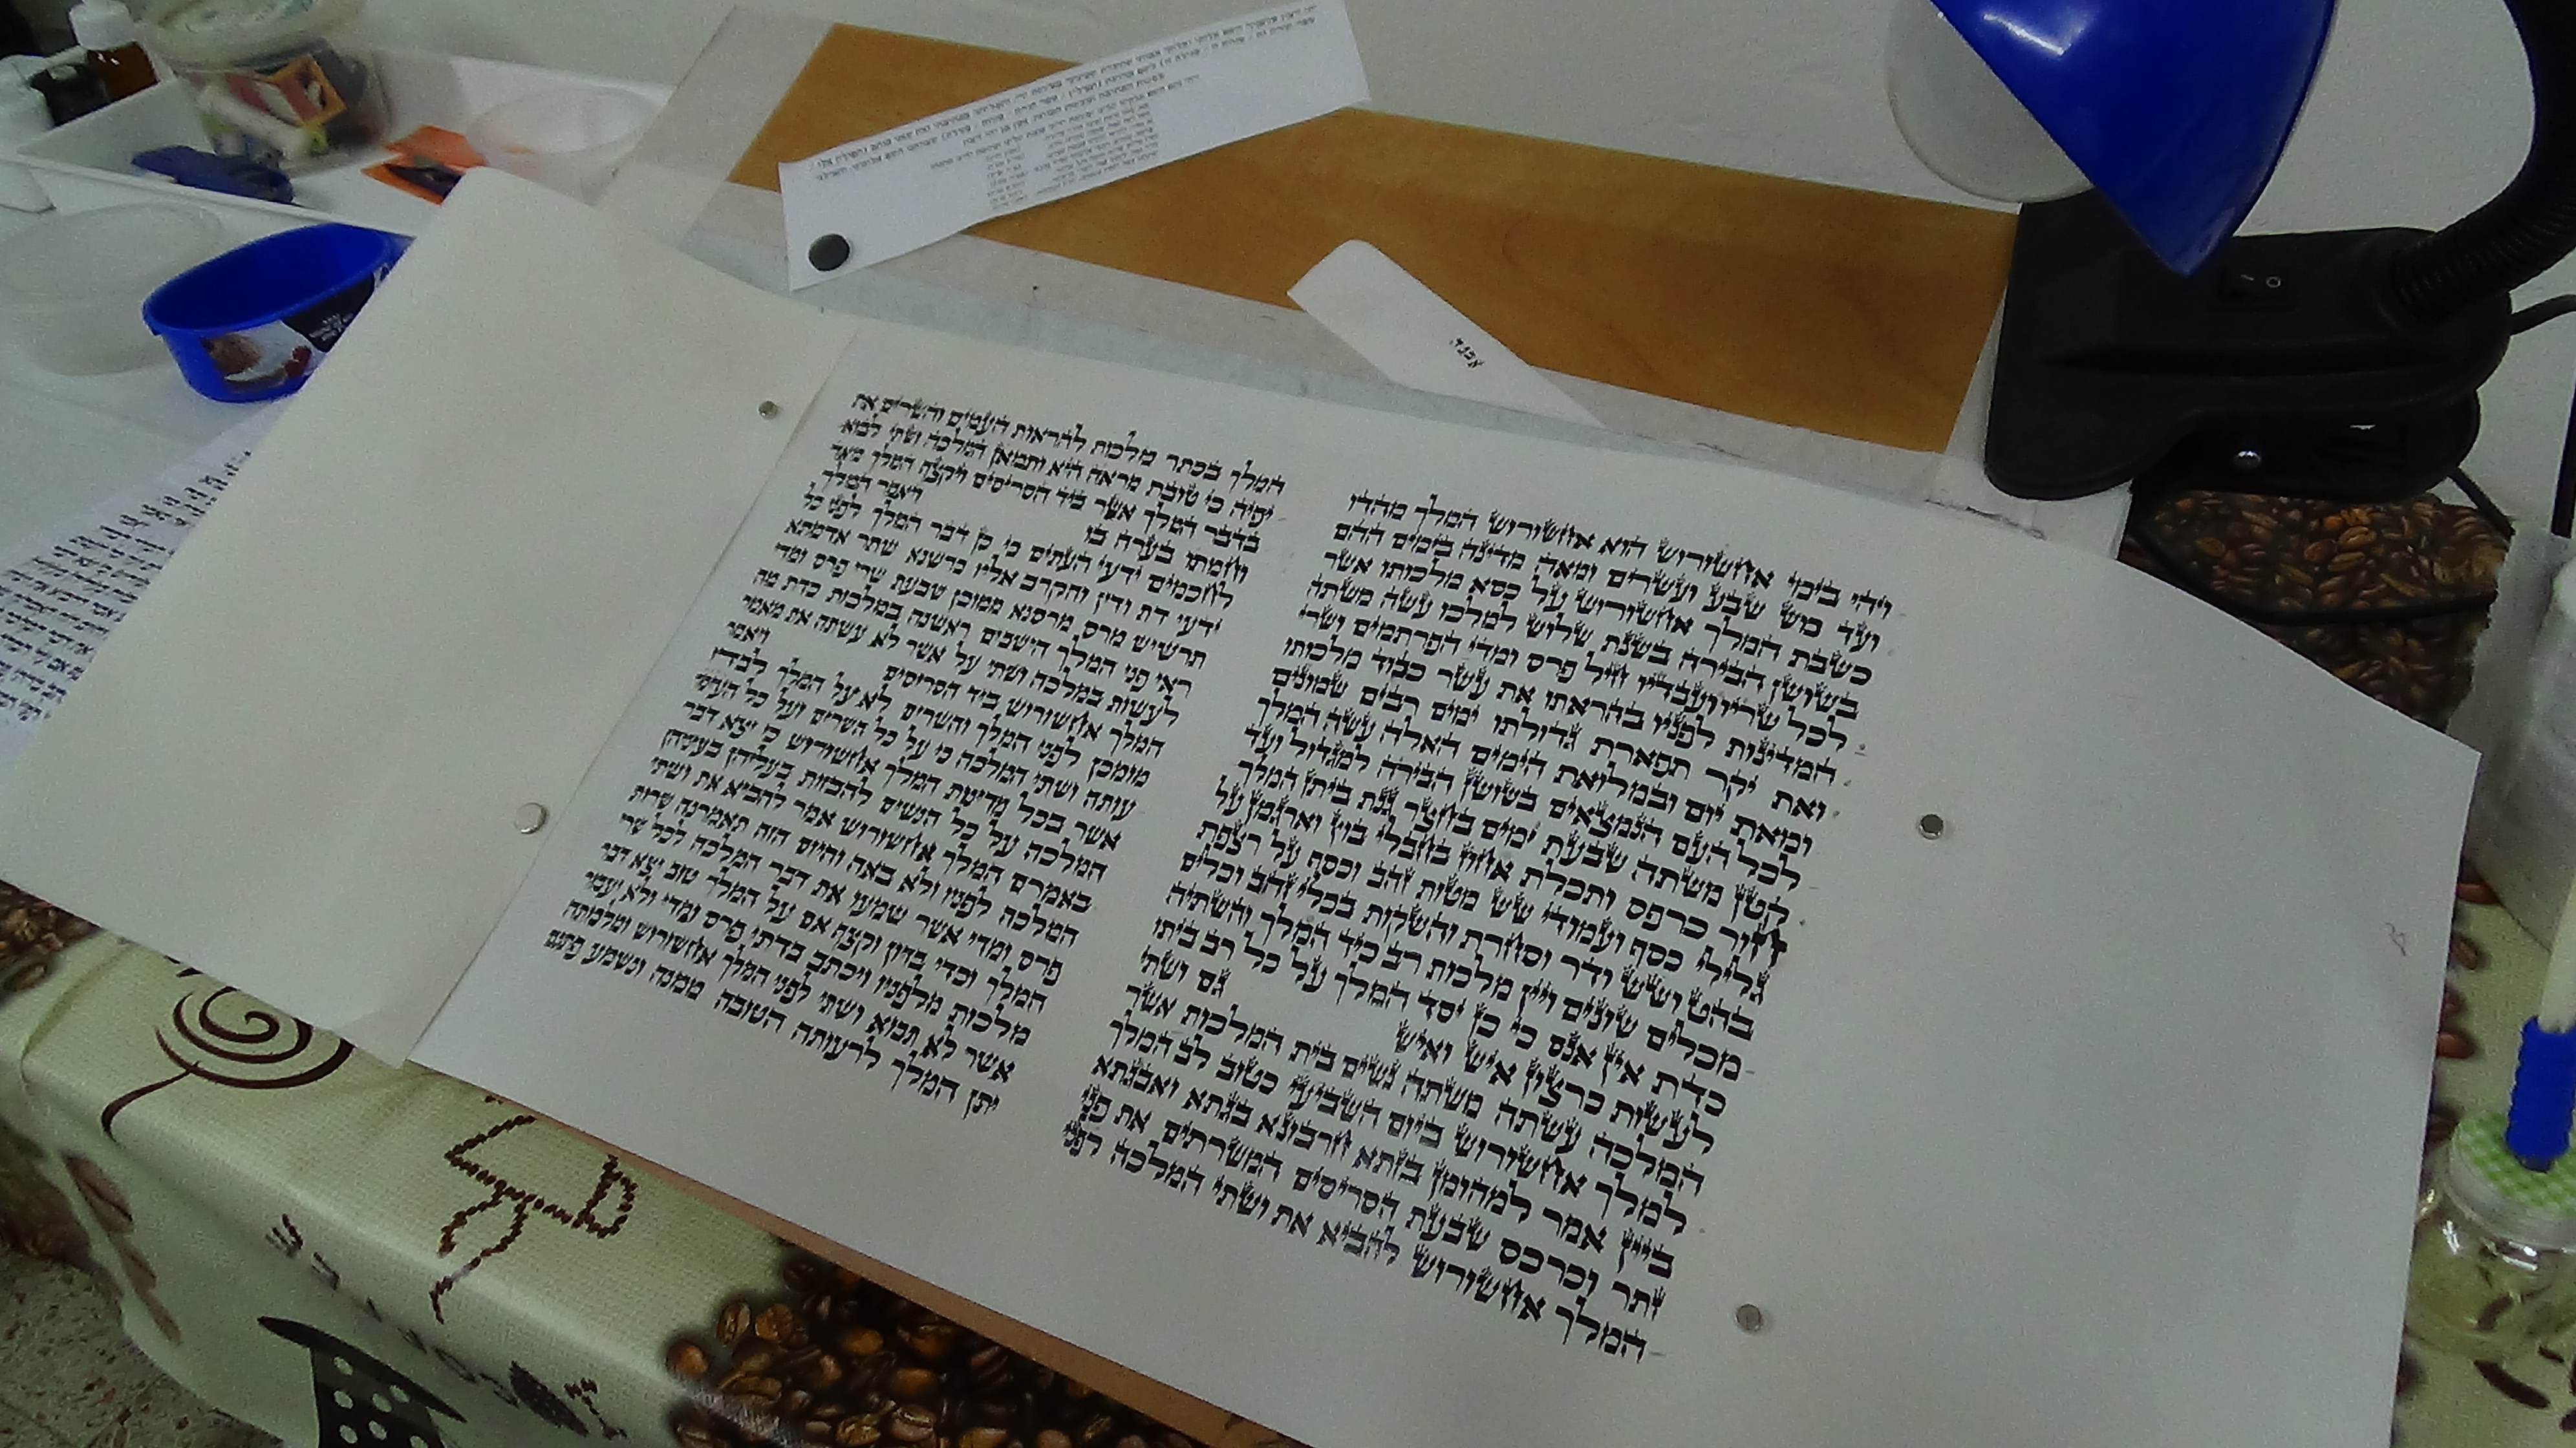 ויהי בימי אחשורוש הוא אחשורוש המלך מהדו
ועד כוש שבע ועשרים ומאה מדינה בימים ההם
כשבת המלך אחשורוש על כסא מלכותו אשר
בשושן הבירה בשנת שלוש למלכו עשה משתה
לכל שריו ועבדיו חיל פרס ומדי הפרתמים ושרי
המדינות לפניו בהראתו את עשר כבוד מלכותו
ואת יקר תפארת גדולתו ימים רבים שמונים
ומאת יום ובמלואת הימים האלה עשה המלך
לכל העם הנמצאים בשושן הבירה למגדול ועד
קטן משתה שבעת ימים בחצר גנת ביתן המלך
חור כרפס ותכלת אחוז בחבלי בוץ וארגמן על
גלילי כסף ועמודי שש מטות זהב וכסף על רצפת
בהט ושש ודר וסחרת והשקות בכלי זהב וכלים
מכלים שונים ויין מלכות רב כיד המלך והשתיה
כדת אין אנס כי כן יסד המלך על כל רב ביתו
לעשות כרצון איש ואיש גם ושתי
המלכה עשתה משתה נשים בית המלכות אשר
למלך אחשורוש ביום השביעי כטוב לב המלך
ביין אמר למהומן בזתא חרבונא בגתא ואבגתא
זתר וכרכס שבעת הסריסים המשרתים את פני
המלך אחשורוש להביא את ושתי המלכה לפני
המלך בכתר מלכות להראות העמים והשרים את
יפיה כי טובת מראה היא ותמאן המלכה ושתי לבוא
בדבר המלך אשר ביד הסריסים ויקצף המלך מאד
וחמתו בערה בו ויאמר המלך
לחכמים ידעי העתים כי כן דבר המלך לפני כל
ידעי דת ודין והקרב אליו כרשנא שתר אדמתא
תרשיש מרס מרסנא ממוכן שבעת שרי פרס ומדי
ראי פני המלך הישבים ראשנה במלכות כדת מה
לעשות במלכה ושתי על אשר לא עשתה את מאמר
המלך אחשורוש ביד הסריסים ויאמר
מומכן לפני המלך והשרים לא על המלך לבדו
עותה ושתי המלכה כי על כל השרים ועל כל העמים
אשר בכל מדינות המלך אחשורוש כי יצא דבר
המלכה על כל הנשים להבזות בעליהן בעיניהן
באמרם המלך אחשורוש אמר להביא את ושתי
המלכה לפניו ולא באה והיום הזה תאמרנה שרות
פרס ומדי אשר שמעו את דבר המלכה לכל שרי
המלך וכדי בזיון וקצף אם על המלך טוב יצא דבר
מלכות מלפניו ויכתב בדתי פרס ומדי ולא יעבור
אשר לא תבוא ושתי לפני המלך אחשורוש ומלכותה
יתן המלך לרעותה הטובה ממנה ונשמע פתגם